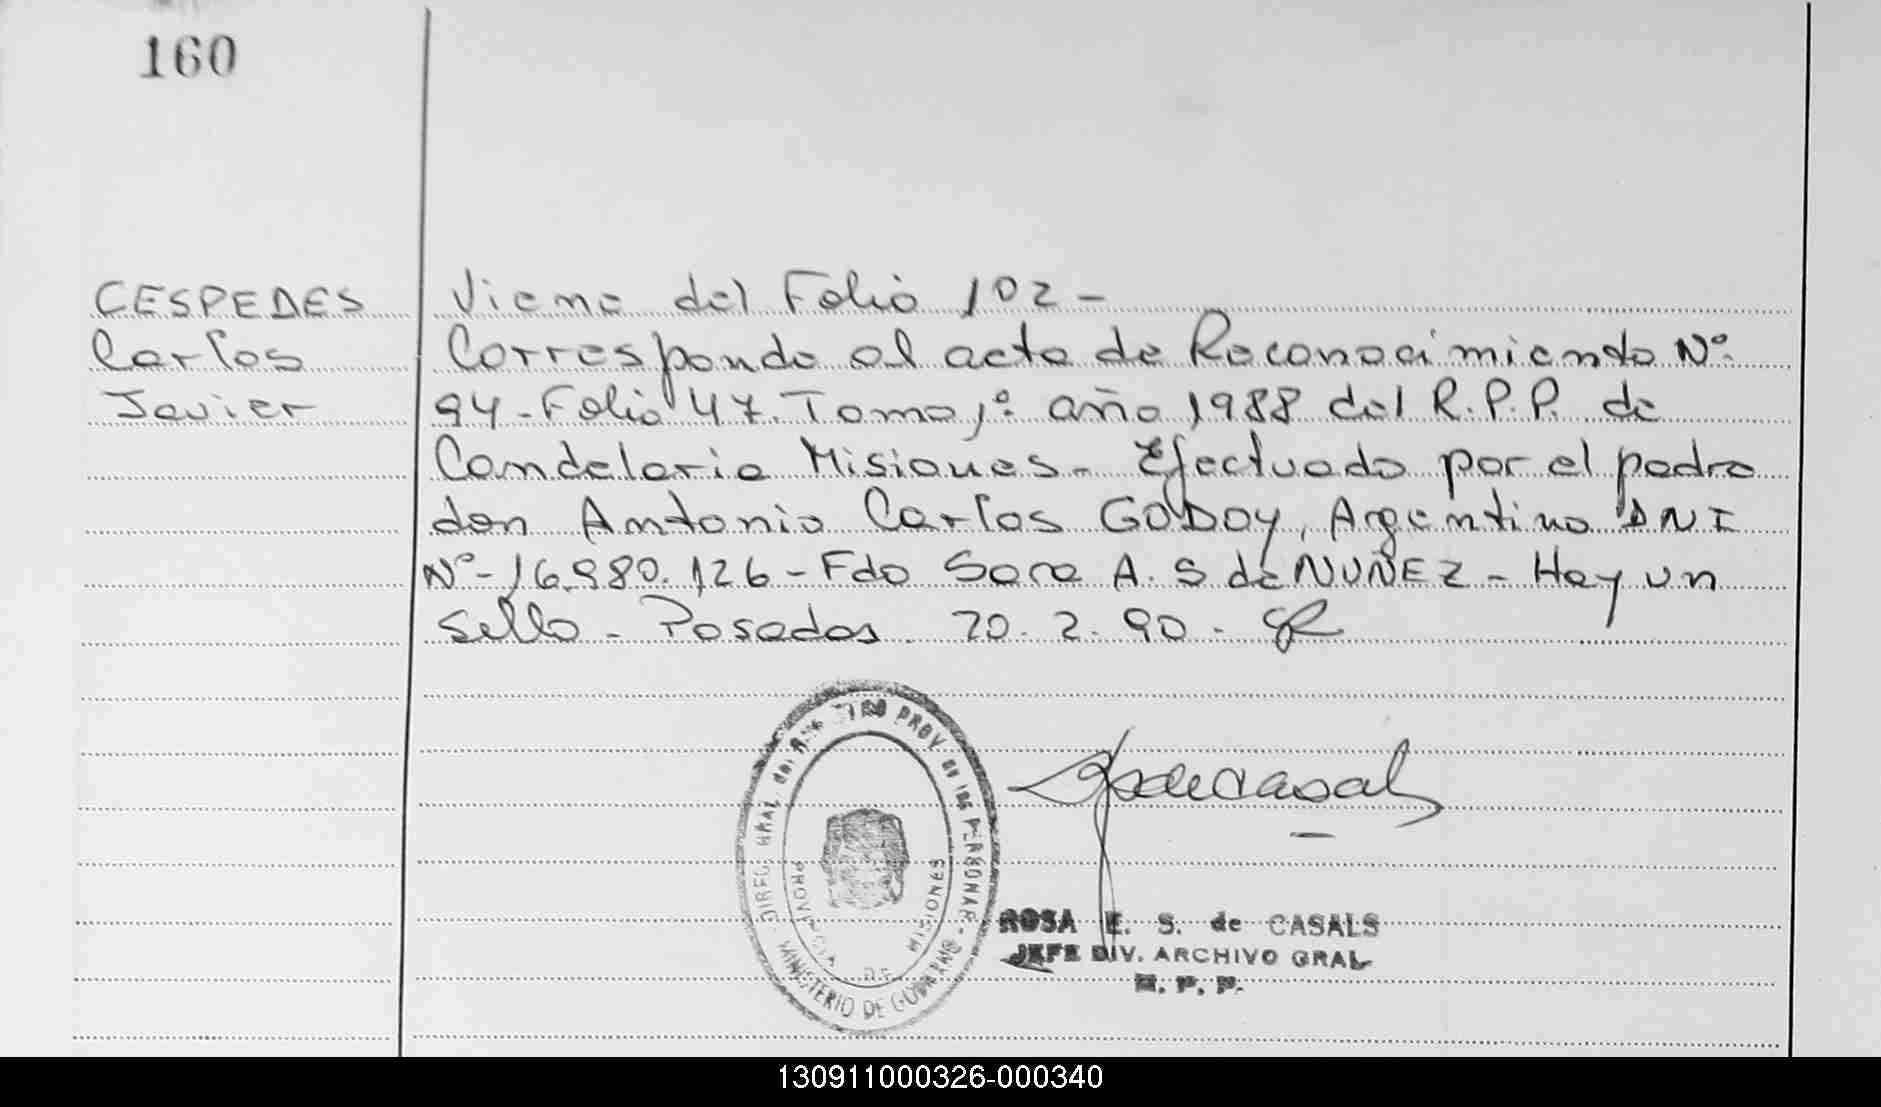 160
CESPEDES
Carlos
Javier
Viene del Folio 102 -
Corresponde al acta de Reconocimiento Nº
94 - Folio 47. Tomo 1º año 1988 del R.P.P. de
Candelaria Misiones - Efectuado por el padre
don Antonio Carlos GODOY, Argentino DNI
Nº - 16.980.126 - Fdo Sara A. S de NUÑEZ - Hay un
sello - Posadas. 20.2.90.
DIREC. GRAL. del REGISTRO PROV. de las PERSONAS
MINISTERIO DE GOBIERNO
PROVINCIA DE MISIONES
de Casals
ROSA E. S. de CASALS
JEFE DIV. ARCHIVO GRAL
R. P. P.
130911000326-000340